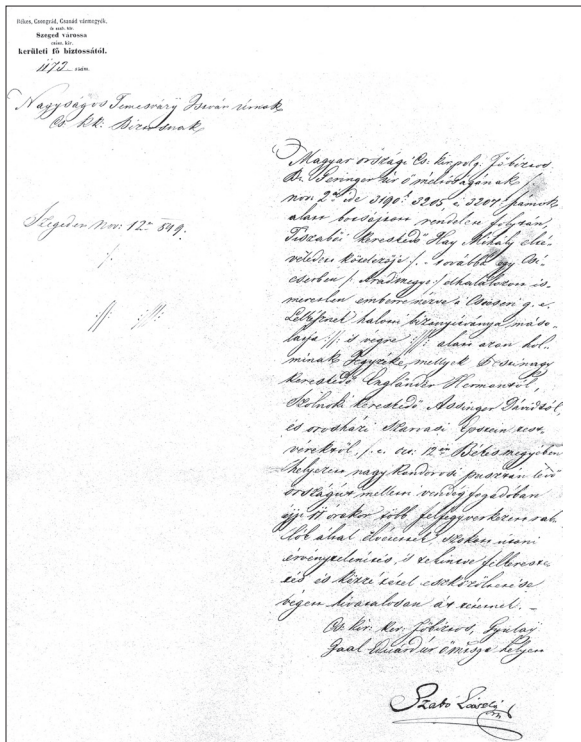 Békes, Csongrád, Csanád vármegyék,
és szab. kir.
Szeged városa
császi. kir.
kerületi fő biztosától.
1173 szám.
Nagyságos Temesváry István úrnak
Cs. kk. Biztosnak
Szegeden Nov: 12én 849.
Magyar országi Cs: kir polg. Főbiztos
B. Geringer úr ő méltóságának
nov: 2án de 3190, 3205 é 3207 számok
alatt bocsájtott rendelete folytán
Tiszabői kereskedő Hay Mihály
: továbbá egy
/: Aradmegye :/ elhalálozott is-
meretlen emberre nézve a g. e.
Lelkésznek halotti bizonyítványa máso-
lata :/: is végre :///: alatt azon hol-
minak Jegyzéke, mellyek
kereskedő Engländer Hermantól,
Szolnoki kereskedő Assinger Dávidtól,
és orosházi Szarvasi Epstein test-
vérektől f. e. oct. 12én Békesmegyében
helyezett nagy Kondorosi pusztán lévő
országút melletti vendégfogadóban
éjji órakor több felfegyverkezett rab-
lók által elvétettek, szokott utáni
érvénytelenítés, is tekintse
és közzététel eszközöltetése
végett hivatalosan át tétetnek. –
Cs. kir. ker. Főbiztos, Gyulay
Gaal Eduard úr ő helyett
Szabó László